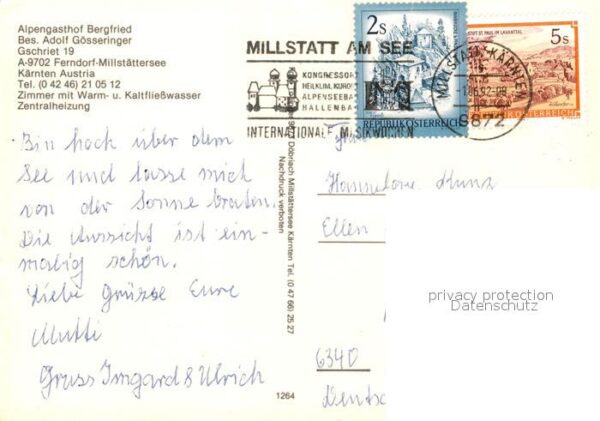 Alpengasthof Bergfried
Bes. Adolf Gösseringer
Gschriet 19
A-9702 Ferndorf-Millstättersee
Kärnten Austria
Tel. (0 42 46) 21 05 12
Zimmer mit Warm- u. Kaltfließwasser
Zentralheizung
MILLSTATT AM SEE
KONGRESSORT
HEILKLIM. KURORT
ALPENSEEBAD
HALLENBAD
INTERNATIONALE MUSIKWOCHEN
2s
REPUBLIK ÖSTERREICH
STIFT ST. PAUL IM LAVANTTAL
5s
REPUBLIK ÖSTERREICH
MILLSTATT, KÄRNTEN
9872
Bin hoch über dem
See und lasse mich
von der Sonne braten.
Die Aussicht ist ein-
malig schön.
Liebe Grüsse Eure
Mutti
Gruss Irmgard & Ulrich
9873 Döbriach Millstättersee Kärnten Tel. (0 47 66) 25 27
Nachdruck verboten
1264
Hannelore
Ellen
6340
Deutsc
privacy protection
Datenschutz